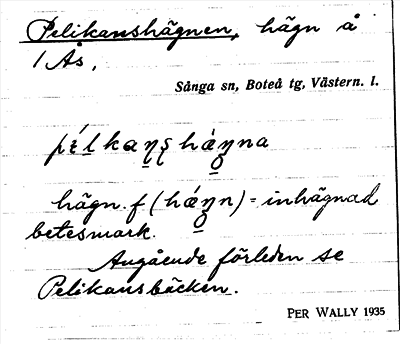 Pelikanshägnen, hägn å
1 Ås.
Sånga sn, Boteå tg, Västern. l.
hägn. f (háŋ̥n) = inhägnad
betesmark.
Angående förleden se
Pelikansbäcken.
PER WALLY 1935